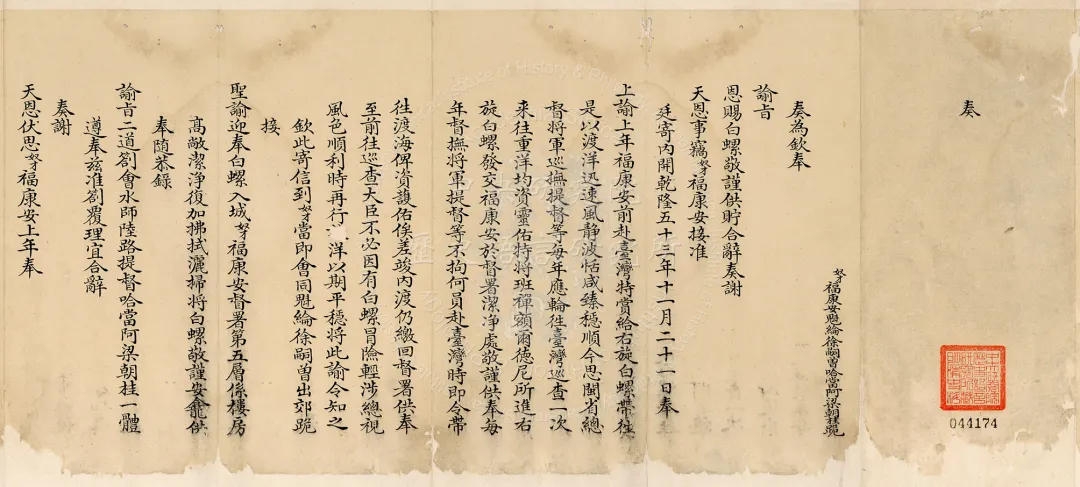 奏
奴才福康安魁綸徐嗣曾哈當阿梁朝桂跪
奏為欽奉
諭旨
恩賜白螺敬謹供貯合辭奏謝
天恩事竊奴才福康安接准
廷寄內開乾隆五十三年十一月二十一日奉
上諭上年福康安前赴臺灣特賞給右旋白螺帶往
是以渡洋迅速風靜波恬咸臻穩順今思閩省總
督將軍巡撫提督等每年應輪往臺灣巡查一次
來往重洋均資靈佑特將班禪額爾德尼所進右
旋白螺發交福康安於督署潔淨處敬謹供奉每
年督撫將軍提督等不拘何員赴臺灣時即令帶
往渡海俾資護佑俟差竣內渡仍繳回督署供奉
至前往巡查大臣不必因有白螺冒險輕涉總視
風色順利時再行 洋以期平穩將此諭令知之
欽此寄信到奴才當即會同魁綸徐嗣曾出郊跪
接
聖諭迎奉白螺入城奴才福康安督署第五層係樓房
高敞潔淨復加拂拭灑掃將白螺敬謹安龕供
奉隨恭錄
諭旨二道劄會水師陸路提督哈當阿梁朝桂一體
遵奉茲准劄覆理宜合辭
奏謝
天恩伏思奴才福康安上年奉
044174